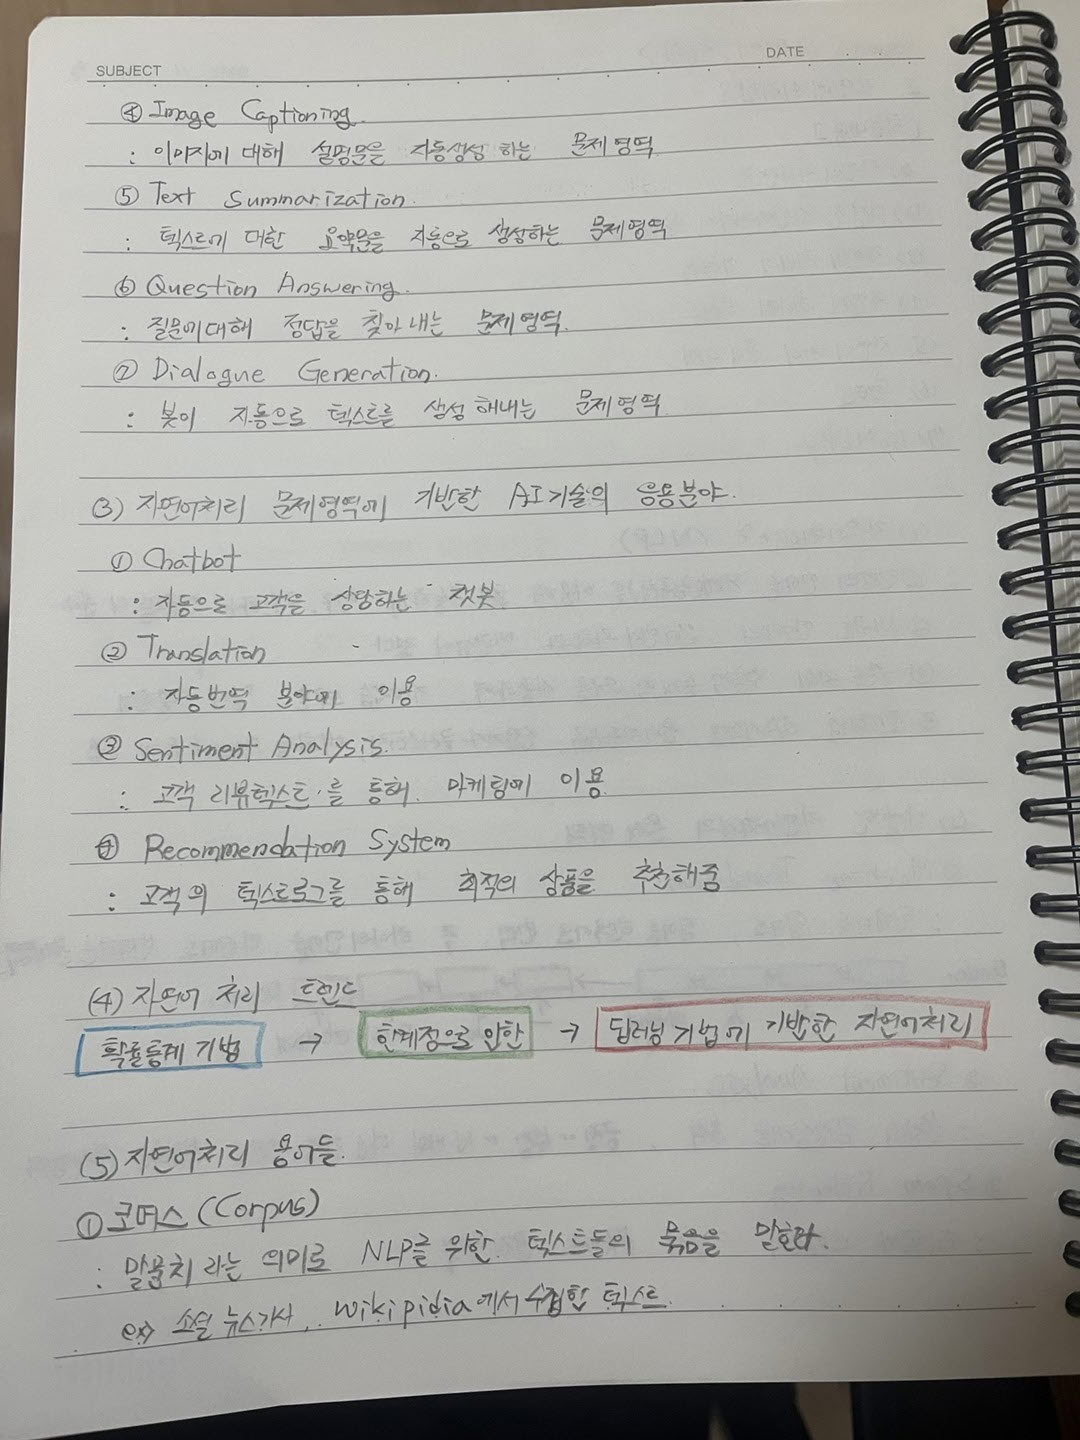 SUBJECT
DATE
④ Image Captioning.
: 이미지에 대해 설명문을 자동생성 하는 문제영역
⑤ Text Summarization.
: 텍스트에 대한 요약문을 자동으로 생성하는 문제영역
⑥ Question Answering.
: 질문에대해 정답을 찾아내는 문제영역.
⑦ Dialogue Generation.
: 봇이 자동으로 텍스트를 생성해내는 문제영역
(3) 자연어처리 문제영역에 기반한 AI기술의 응용분야.
① Chatbot
: 자동으로 고객을 상담하는 챗봇
② Translation
: 자동번역 분야에 이용
③ Sentiment Analysis.
: 고객 리뷰텍스트를 통해. 마케팅에 이용.
④ Recommendation System
: 고객의 텍스트로그를 통해 최적의 상품을 추천해줌
(4) 자연어 처리 트렌드
확률통계 기법 → 한계점으로 인한 → 딥러닝 기법에 기반한 자연어처리
(5) 자연어처리 용어들.
① 코퍼스 (Corpus)
: 말뭉치 라는 의미로 NLP를 위한 텍스트들의 묶음을 말한다.
ex) 소설, 뉴스기사, wikipidia에서 수집한 텍스트.